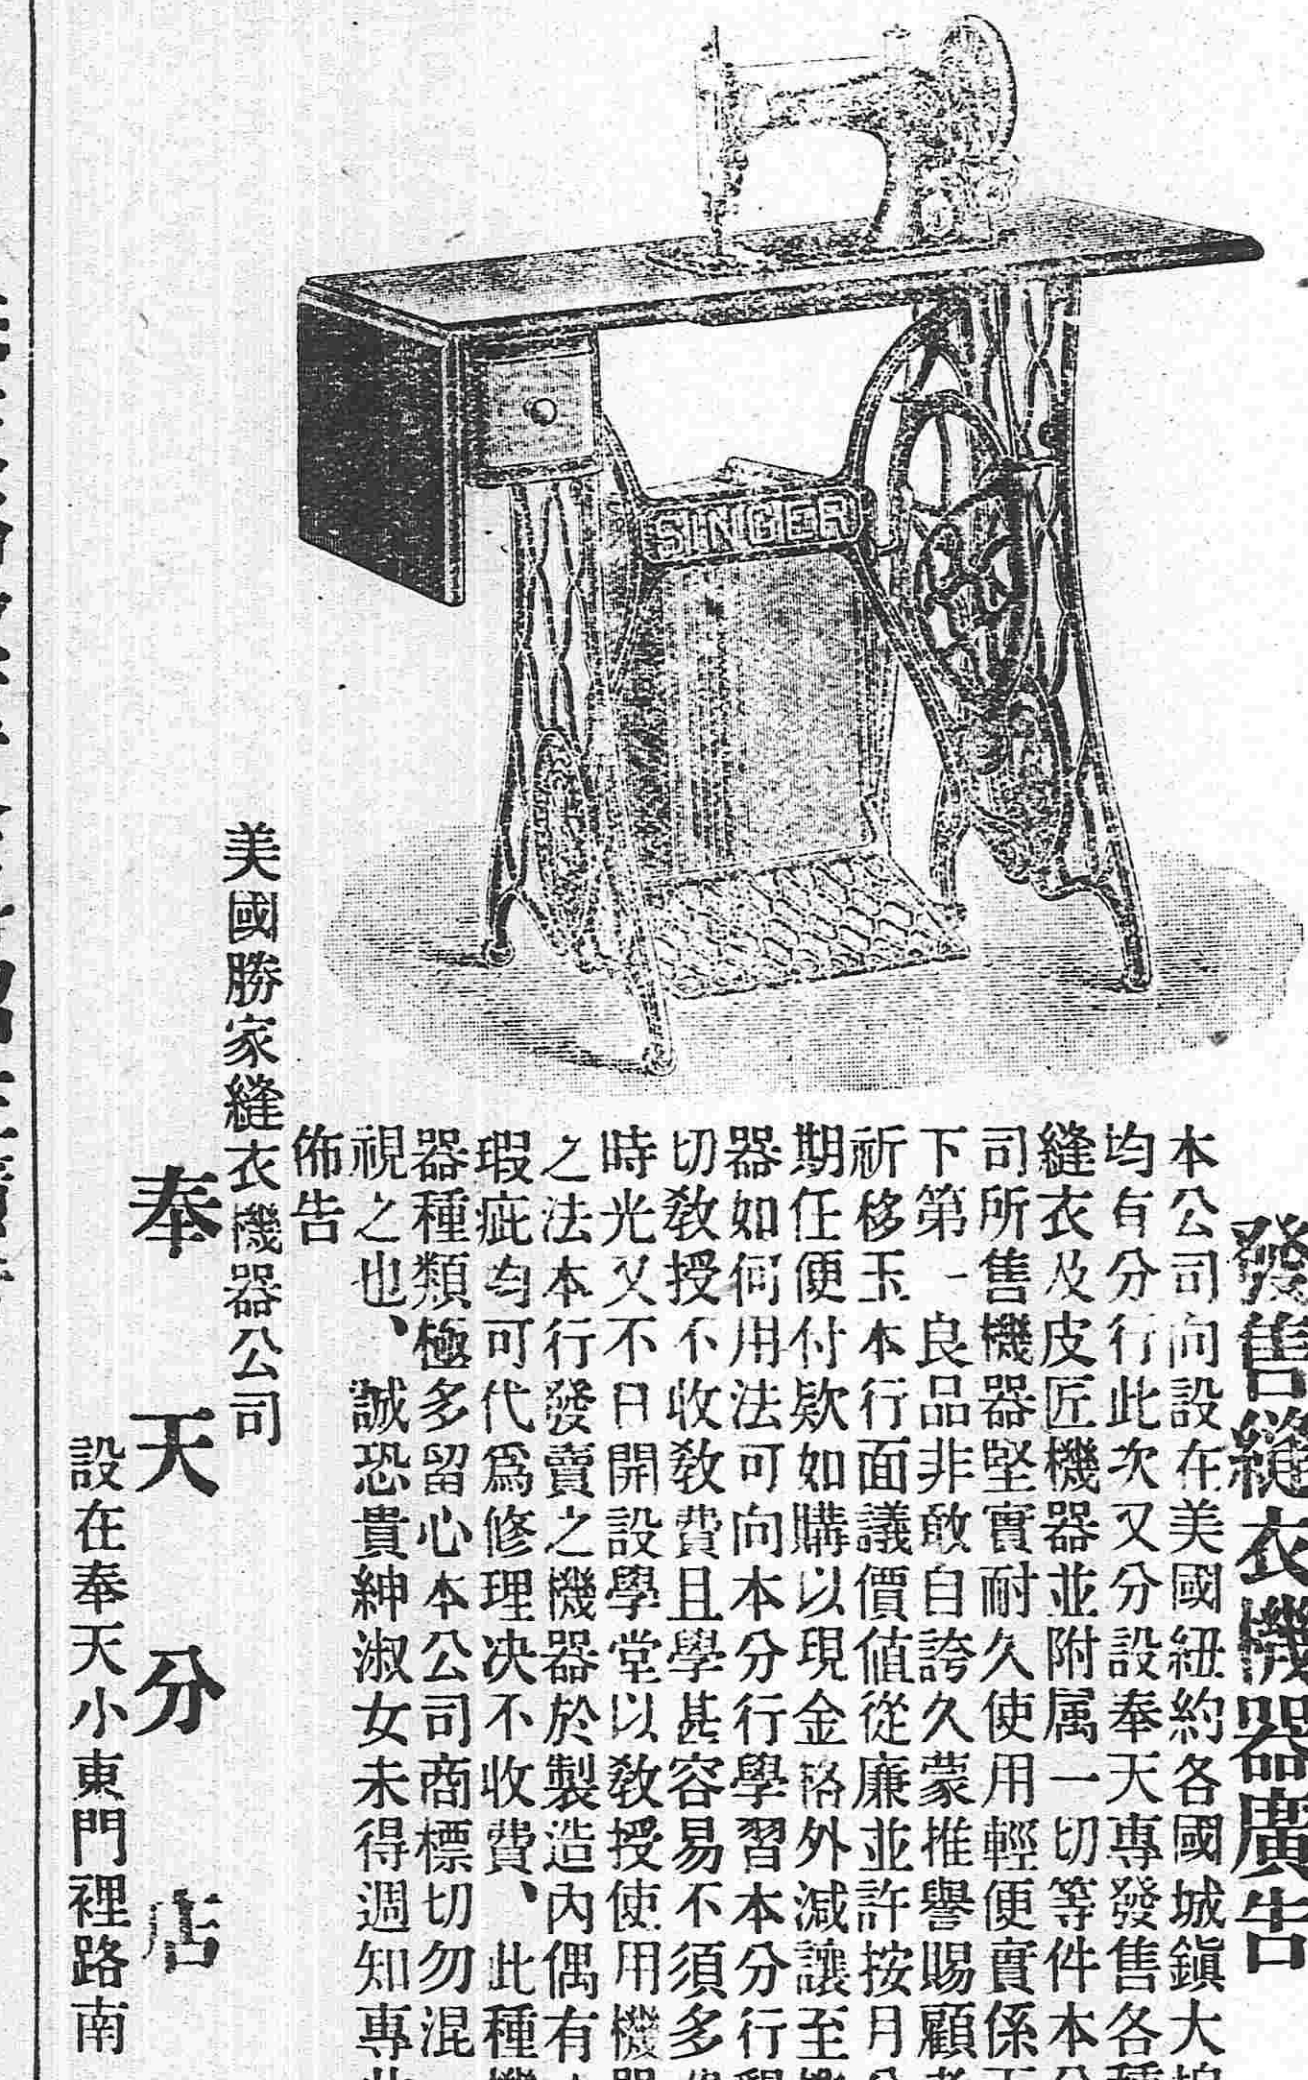 發售縫衣機器廣告
本公司向設在美國紐約各國城鎮大埠
均有分行此次又分設奉天專發售各種
縫衣及皮匠機器並附属一切等件本公
司所售機器堅實耐久使用輕便實係天
下第一良品非敢自誇久蒙推譽賜顧者
祈移玉本行面議價值從廉並許按月分
期任便付欵如購以現金格外減讓至機
器如何用法可向本分行學習本分行
切敎授不收敎費且學甚容易不須多
時光又不日開設學堂以敎授使用機器
之法本行發賣之機器於製造內偶有
瑕疵均可代爲修理决不收費、此種機
器種類極多留心本公司商標切勿混
視之也、誠恐貴紳淑女未得週知專此
佈告
SINGER
美國勝家縫衣機器公司
奉天分店
設在奉天小東門裡路南